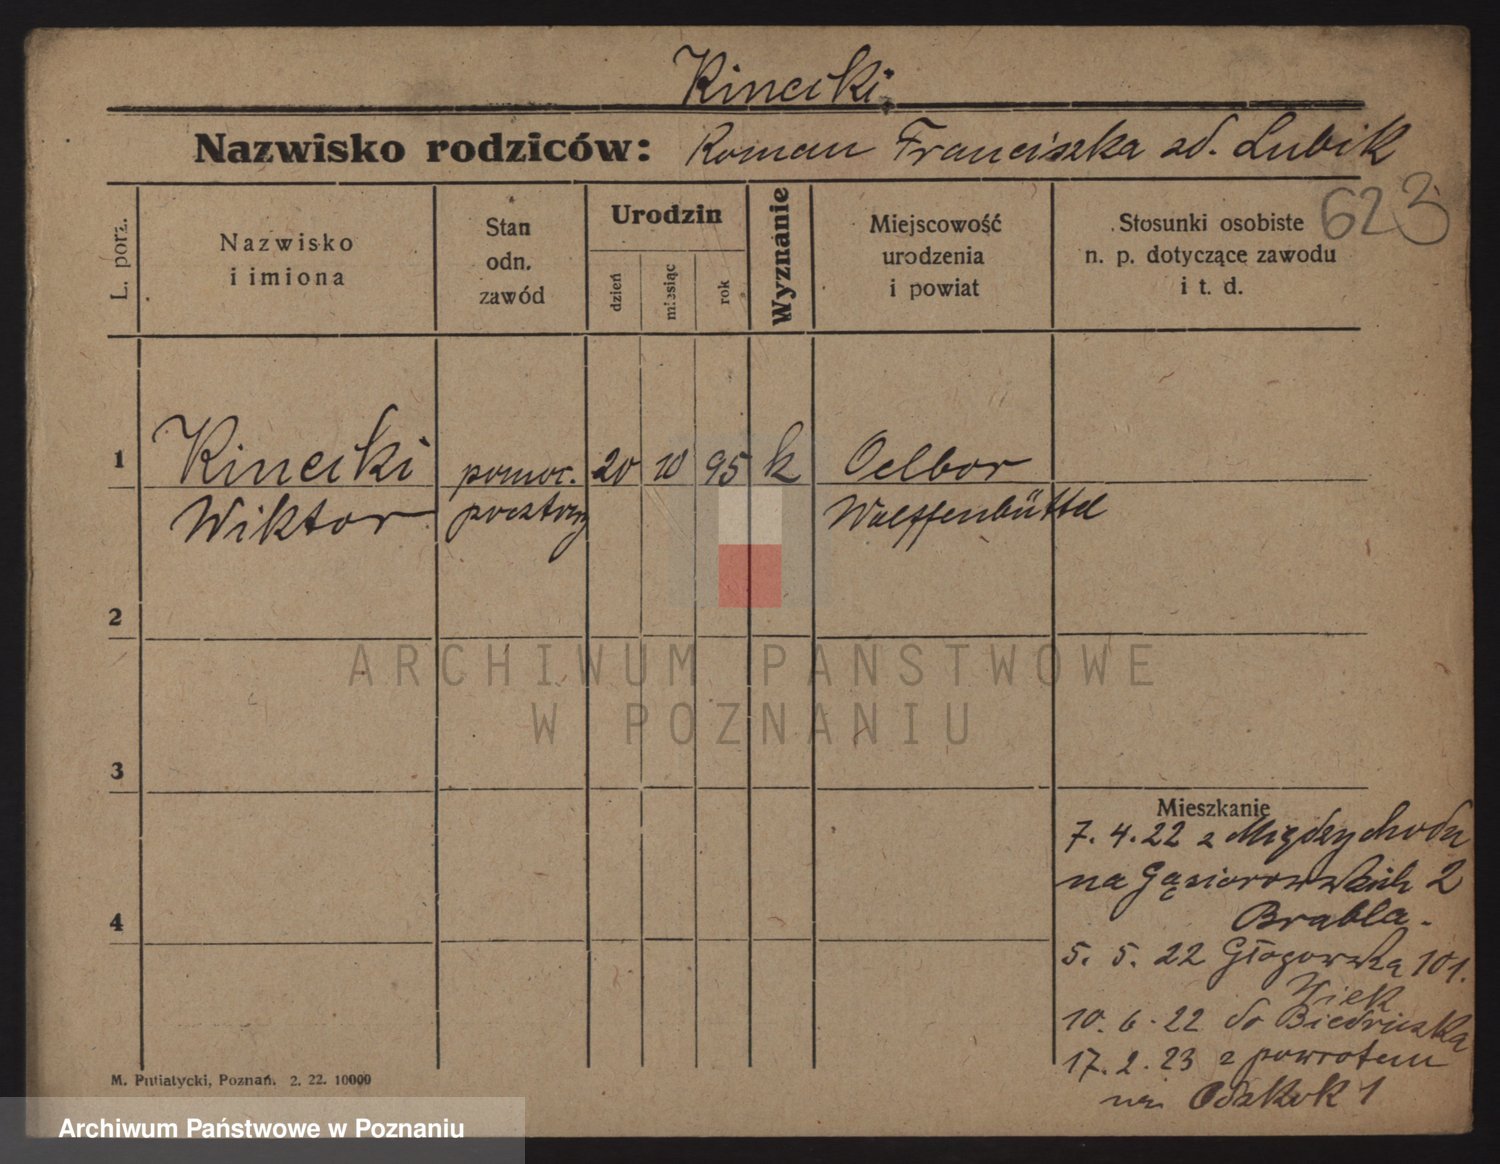 Kinecki
Nazwisko rodziców: Roman Franciszka zd. Lubik
623
L. porz.
Nazwisko
i imiona
Stan
odn.
zawód
Urodzin
dzień
miesiąc
rok
Wyznanie
Miejscowość
urodzenia
i powiat
Stosunki osobiste
n. p. dotyczące zawodu
i t. d.
1
Kinecki pomoc. 20 10 95 k Oelbor
Wiktor
2
3
4
Mieszkanie
7. 4. 22 z Międzychodu
na Gąsiorowskich 2
Brabla.
5. 5. 22 Głogowska 101.
10. 6. 22 do Biedruska
17. 2. 23 z powrotem
na 1
M. Putiatycki, Poznań. 2. 22. 10000
ARCHIWUM PAŃSTWOWE
W POZNANIU
Archiwum Państwowe w Poznaniu